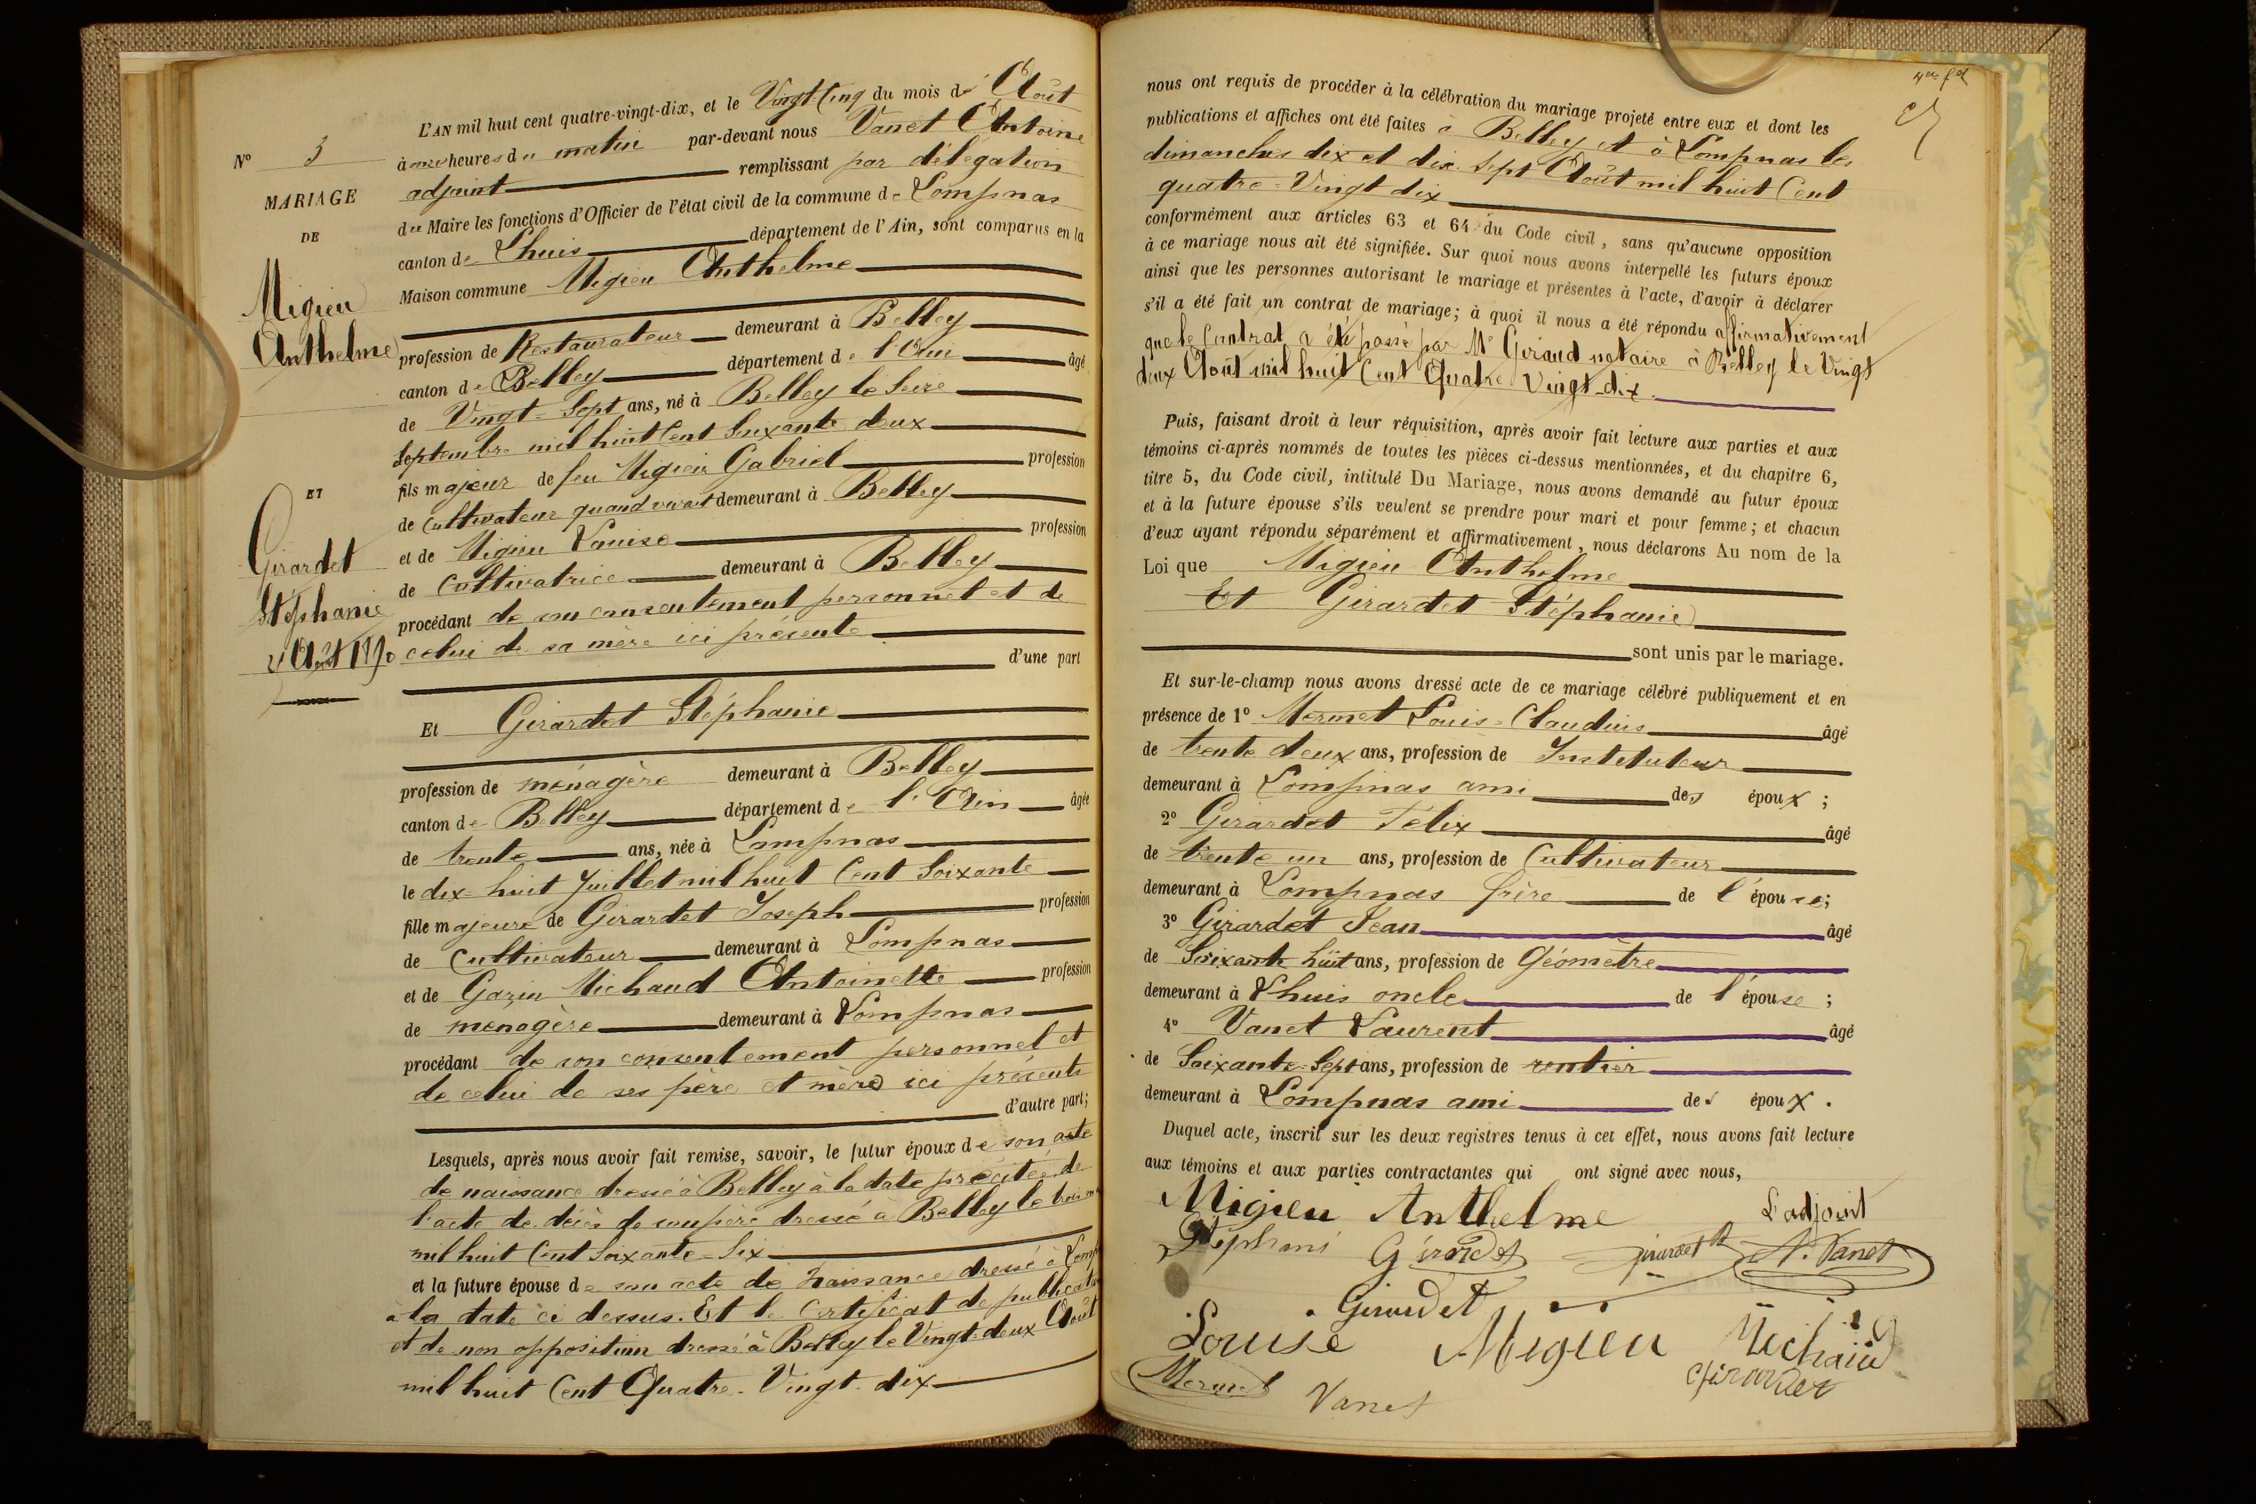 N° 3
MARIAGE
DE
Migieu
Anthelme
ET
Girardet
Stéphanie
Août 1890
L'AN mil huit cent quatre-vingt-dix, et le Vingt-Cinq du mois d'Août
à onze heures du matin par-devant nous Vanet Antoine
adjoint remplissant par délégation
du Maire les fonctions d'Officier de l'état civil de la commune de Lompnas
canton de Lhuis département de l'Ain, sont comparus en la
Maison commune Migieu Anthelme
profession de Restaurateur demeurant à Belley
canton de Belley département de l'Ain âgé
de Vingt-Sept ans, né à Belley le Seize
Septembre mil huit Cent Soixante deux
fils majeur de feu Migieu Gabriel profession
de Cultivateur quand vivait demeurant à Belley
et de Migieu Louise profession
de Cultivatrice demeurant à Belley
procédant de son consentement personnel et de
celui de sa mère ici présente
d'une part
Et Girardet Stéphanie
profession de ménagère demeurant à Belley
canton de Belley département de l'Ain âgée
de trente ans, née à Lompnas
le dix-huit Juillet mil huit Cent Soixante
fille majeure de Girardet Joseph profession
de Cultivateur demeurant à Lompnas
et de Gazin Michaud Antoinette profession
de ménagère demeurant à Lompnas
procédant de son consentement personnel et
de celui de ses père et mère ici présents
d'autre part;
Lesquels, après nous avoir fait remise, savoir, le futur époux de son acte
de naissance dressé à Belley à la date précitée de
l'acte de décès de son père dressé à Belley le trois
mil huit Cent Soixante-Six
et la future épouse de son acte de Naissance dressé à Lomp
à la date ci dessus. Et le Certificat de publication
et de non opposition dressé à Belley le Vingt-deux Août
mil huit Cent Quatre-Vingt-dix
nous ont requis de procéder à la célébration du mariage projeté entre eux et dont les
publications et affiches ont été faites à Belley et à Lompnas les
dimanches dix et dix-Sept Août mil huit Cent
quatre-Vingt dix
conformément aux articles 63 et 64 du Code civil, sans qu'aucune opposition
à ce mariage nous ait été signifiée. Sur quoi nous avons interpellé les futurs époux
ainsi que les personnes autorisant le mariage et présentes à l'acte, d'avoir à déclarer
s'il a été fait un contrat de mariage; à quoi il nous a été répondu affirmativement
que le Contrat a été passé par Me Giraud notaire à Belley le Vingt
deux Août mil huit Cent Quatre Vingt-dix.
Puis, faisant droit à leur réquisition, après avoir fait lecture aux parties et aux
témoins ci-après nommés de toutes les pièces ci-dessus mentionnées, et du chapitre 6,
titre 5, du Code civil, intitulé Du Mariage, nous avons demandé au futur époux
et à la future épouse s'ils veulent se prendre pour mari et pour femme; et chacun
d'eux ayant répondu séparément et affirmativement, nous déclarons Au nom de la
Loi que Migieu Anthelme
Et Girardet Stéphanie
sont unis par le mariage.
Et sur-le-champ nous avons dressé acte de ce mariage célébré publiquement et en
présence de 1° Mermet Louis-Claudius âgé
de trente deux ans, profession de Instituteur
demeurant à Lompnas ami des époux;
2° Girardet Félix âgé
de trente un ans, profession de Cultivateur
demeurant à Lompnas frère de l'épouse;
3° Girardet Jean âgé
de Soixante huit ans, profession de Géomètre
demeurant à Lhuis oncle de l'épouse;
4° Vanet Laurent âgé
de Soixante-Sept ans, profession de rentier
demeurant à Lompnas ami des époux.
Duquel acte, inscrit sur les deux registres tenus à cet effet, nous avons fait lecture
aux témoins et aux parties contractantes qui ont signé avec nous,
Migieu Anthelme L'adjoint
Stéphani Girardet Girardet A. Vanet
Girardet
Louise Migieu Michaud
Mermet Vanet Girardet